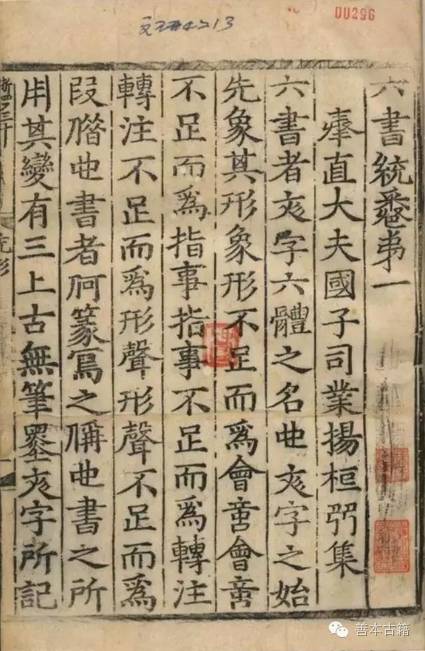 00296
六書統卷弟一
奉直大夫國子司業揚桓弜集
六書者彣字六體之名也彣字之始
先象其形象形不足而爲會意會意
不足而爲指事指事不足而爲轉注
轉注不足而爲形聲形聲不足而爲
叚借也書者何篆寫之偁也書之所
用其變有三上古無筆墨彣字所記
善本古籍